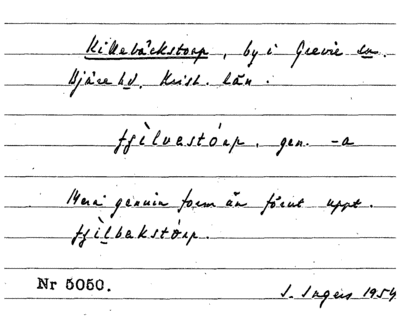 Killebäckstorp, by i Grevie sn.
Bjäre hd, Krist. län.
fjìlvastórp, gen. -a
Mera genuin form än förut uppt.
fjìlbakstórp.
Nr 5050.
S. Ingers 1954